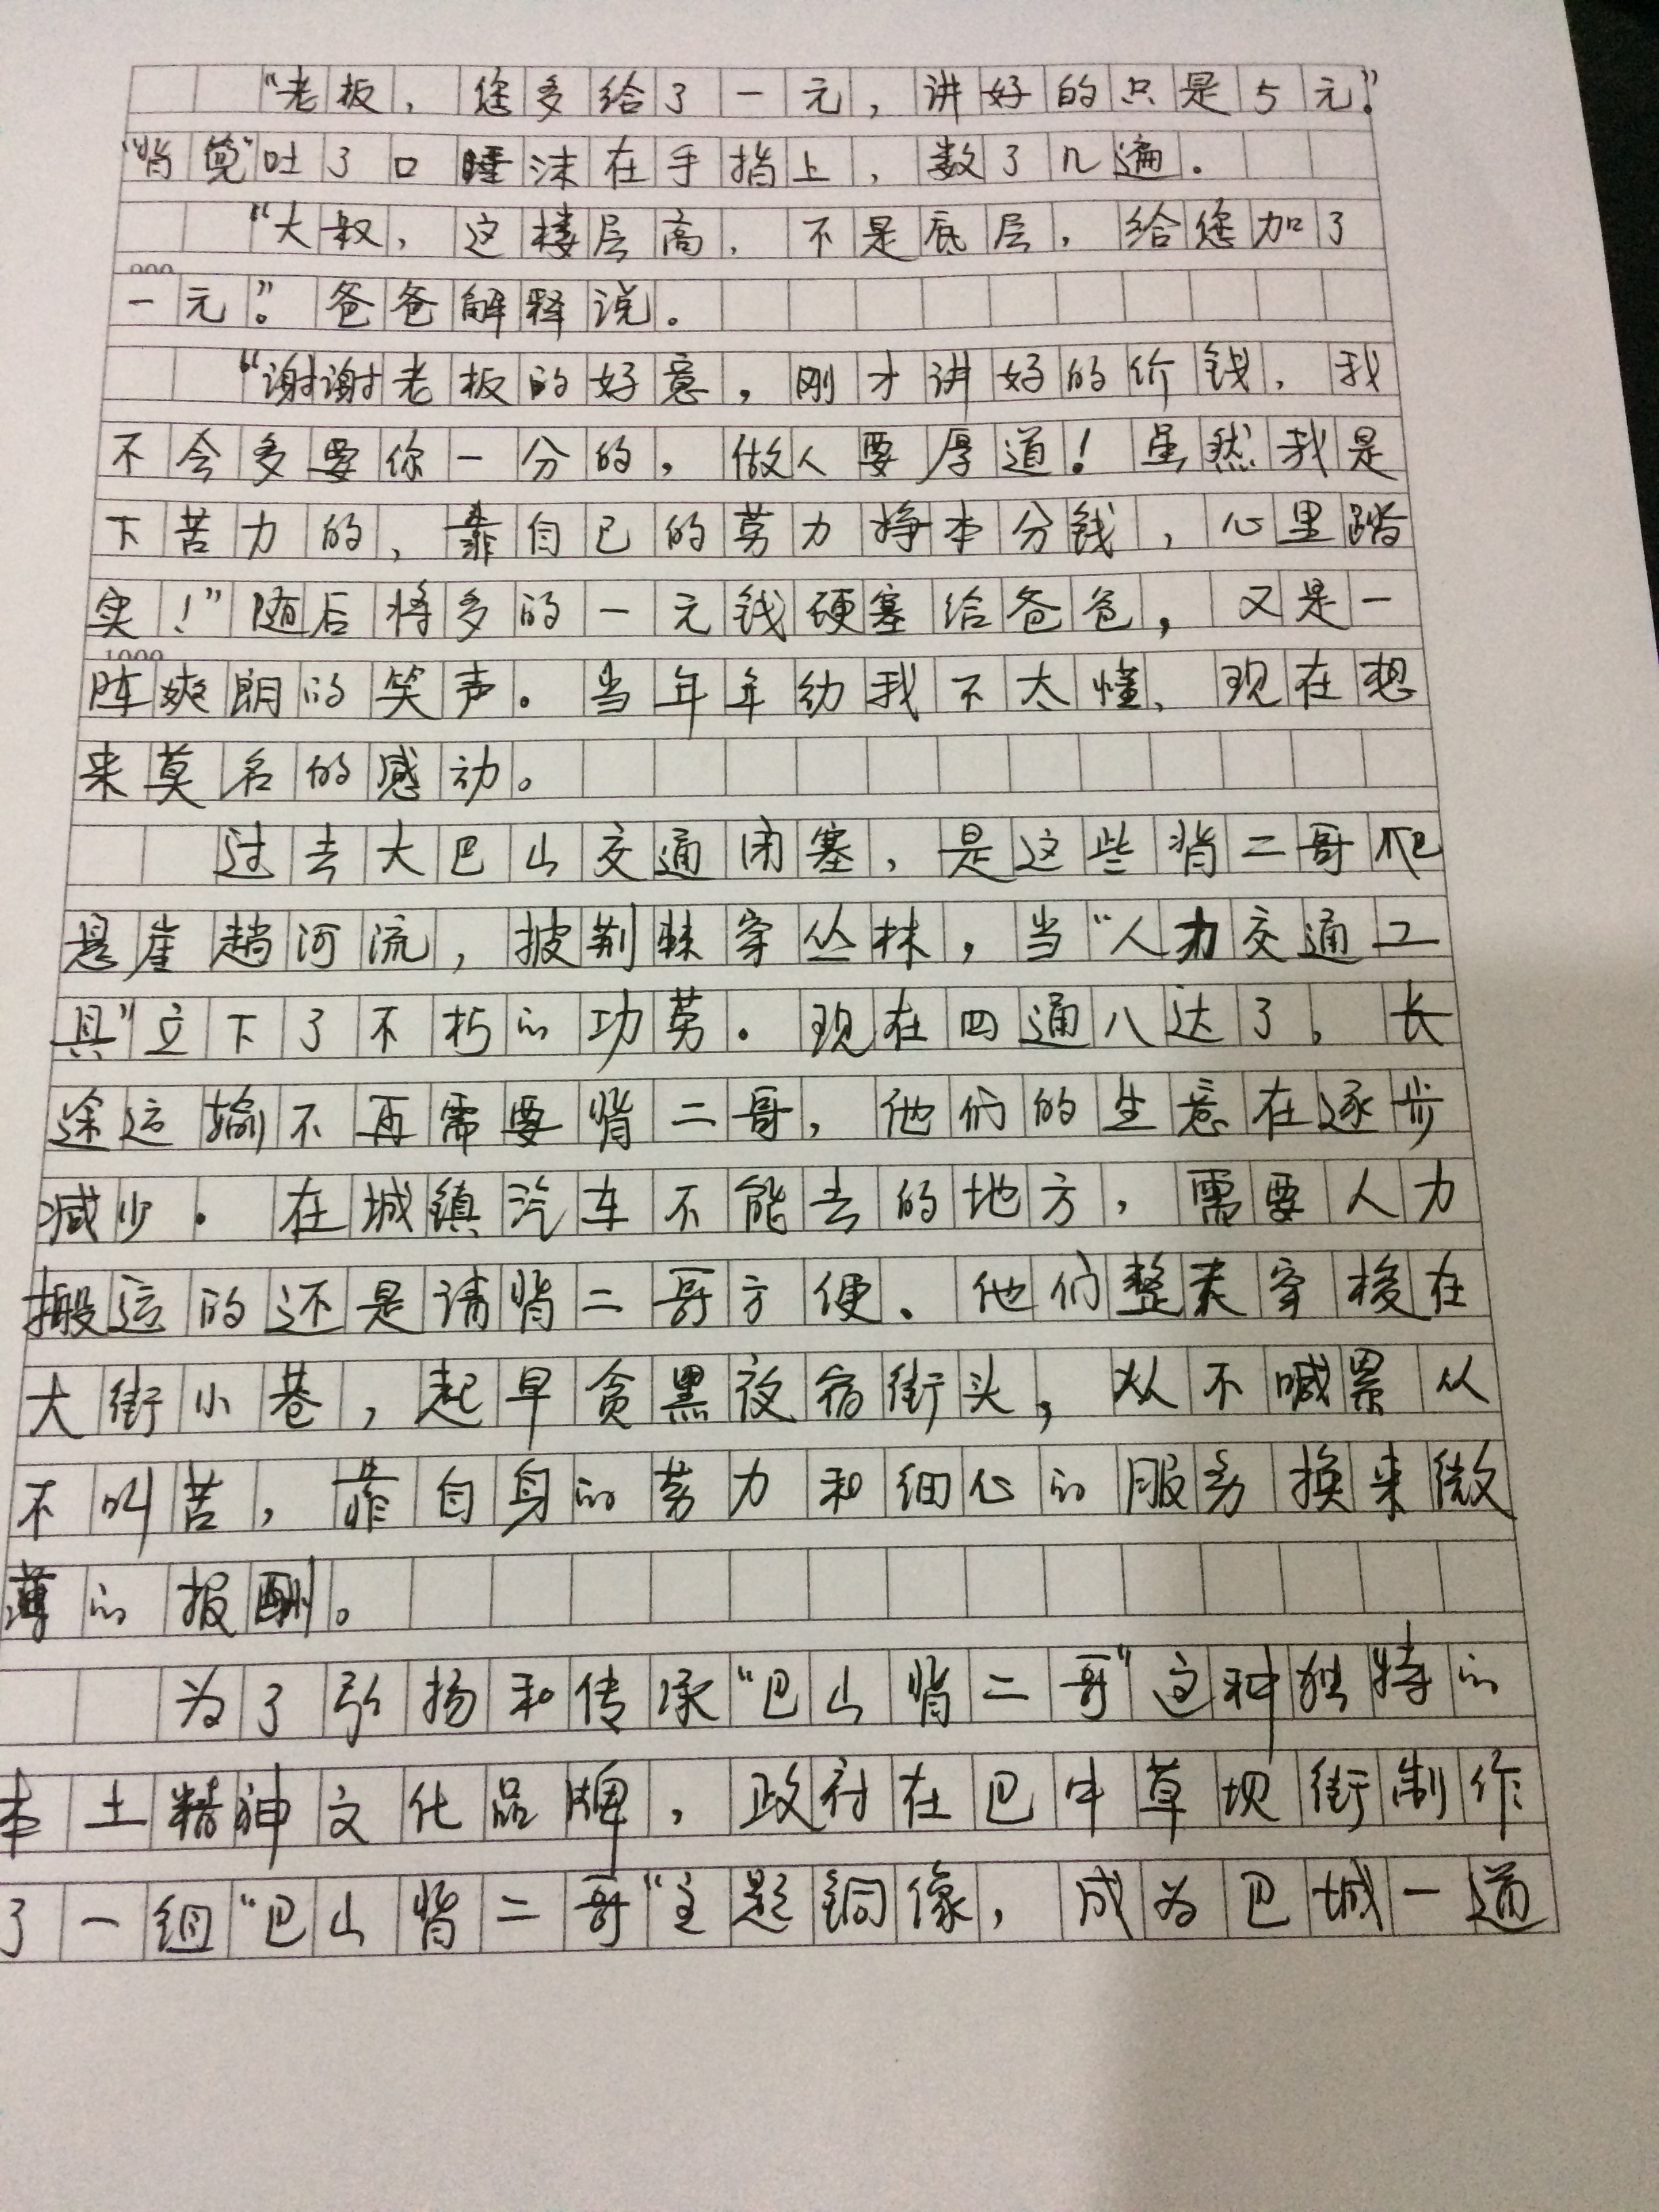 “老板，您多给了一元，讲好的只是5元。”
“背篼”吐了口唾沫在手指上，数了几遍。
“大叔，这楼层高，不是底层，给您加了
800
一元。”爸爸解释说。
“谢谢老板的好意，刚才讲好的价钱，我
不会多要你一分的，做人要厚道！虽然我是
下苦力的，靠自己的劳力挣本分钱，心里踏
实！”随后将多的一元钱硬塞给爸爸，又是一
1000
阵爽朗的笑声。当年年幼我不太懂，现在想
来莫名的感动。
过去大巴山交通闭塞，是这些背二哥爬
悬崖趟河流，披荆棘穿丛林，当“人力交通工
具”立下了不朽的功劳。现在四通八达了，长
途运输不再需要背二哥，他们的生意在逐步
减少。在城镇汽车不能去的地方，需要人力
搬运的还是请背二哥方便。他们整天穿梭在
大街小巷，起早贪黑夜宿街头，从不喊累从
不叫苦，靠自身的劳力和细心的服务换来微
薄的报酬。
为了弘扬和传承“巴山背二哥”这种独特的
本土精神文化品牌，政府在巴中草坝街制作
了一组“巴山背二哥“主题铜像，成为巴城一道